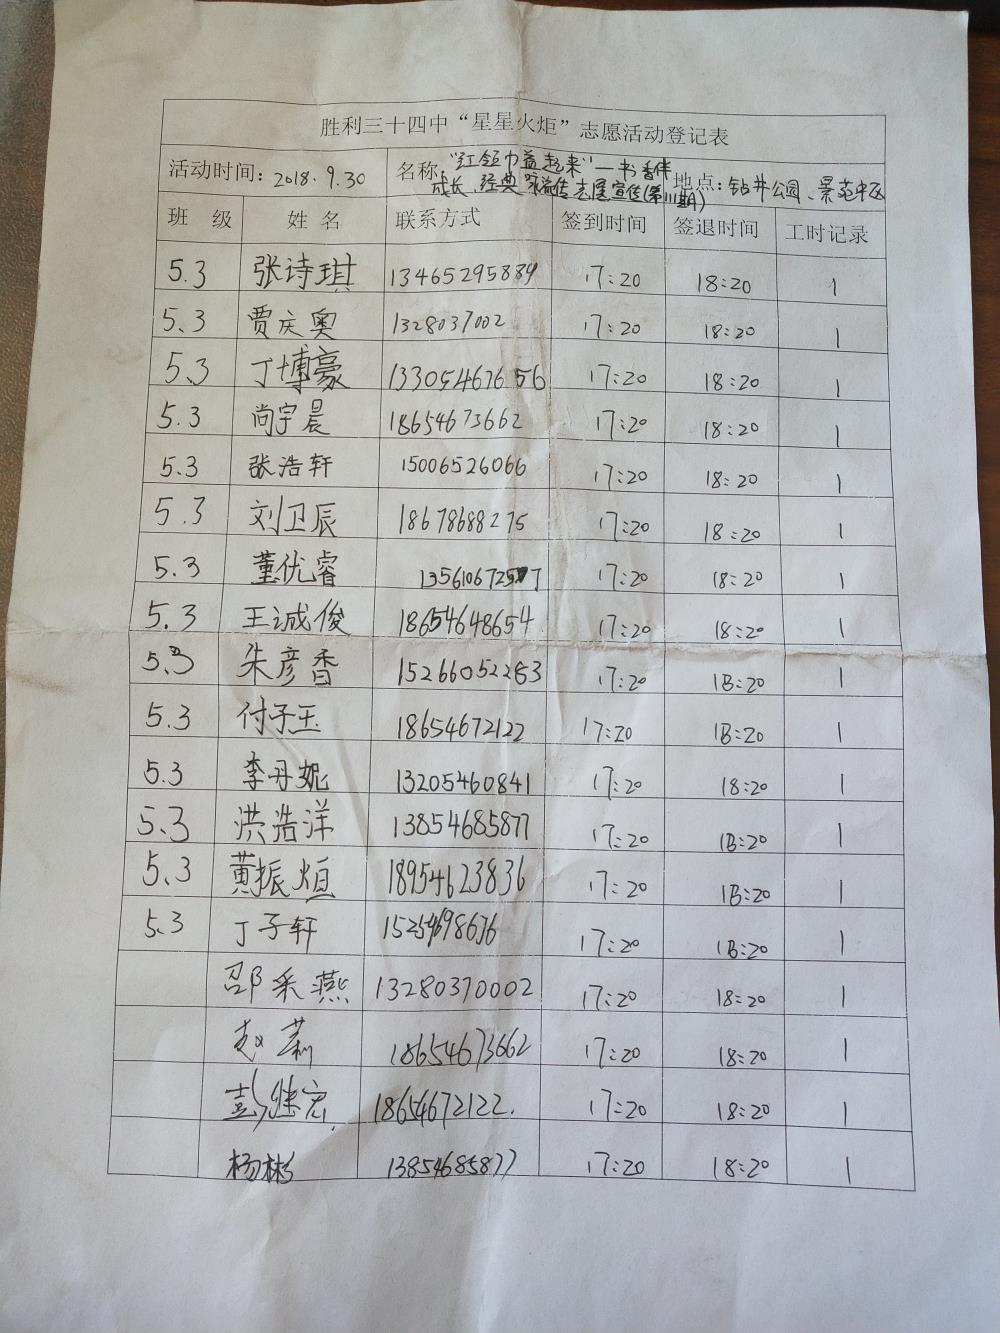 胜利三十四中“星星火炬”志愿活动登记表
活动时间：2018.9.30 名称 “红领巾益起来”—书香伴
成长、经典咏流传志愿宣传(第111期) 地点：钻井公园、景苑中区
班 级 姓 名 联系方式 签到时间 签退时间 工时记录
5.3 张诗琪 13465295889 17:20 18:20 1
5.3 贾庆奥 1328037002 17:20 18:20 1
5.3 丁博豪 13305467656 17:20 18:20 1
5.3 尚宇晨 18654673662 17:20 18:20 1
5.3 张浩轩 15006526066 17:20 18:20 1
5.3 刘卫辰 18678688275 17:20 18:20 1
5.3 董优睿 17:20 18:20 1
5.3 王诚俊 18654648654 17:20 18:20 1
5.3 朱彦香 15266052283 17:20 18:20 1
5.3 付子玉 18654672122 17:20 18:20 1
5.3 李丹妮 13205460841 17:20 18:20 1
5.3 洪浩洋 13854685877 17:20 18:20 1
5.3 黄振烜 18954623836 17:20 18:20 1
5.3 丁子轩 15254698636 17:20 18:20 1
邵采燕 13280370002 17:20 18:20 1
赵莉 18654673662 17:20 18:20 1
彭继宏 18654672122. 17:20 18:20 1
杨彬 13854685877 17:20 18:20 1